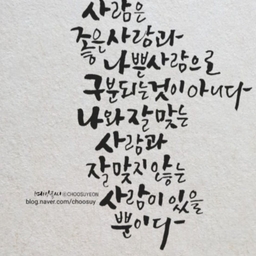 사람은
좋은사람과
나쁜사람으로
구분되는것이아니다
나와잘맞는
사람과
잘맞지않는
사람이있을
뿐이다
©CHOOSUYEON
blog.naver.com/choosuy